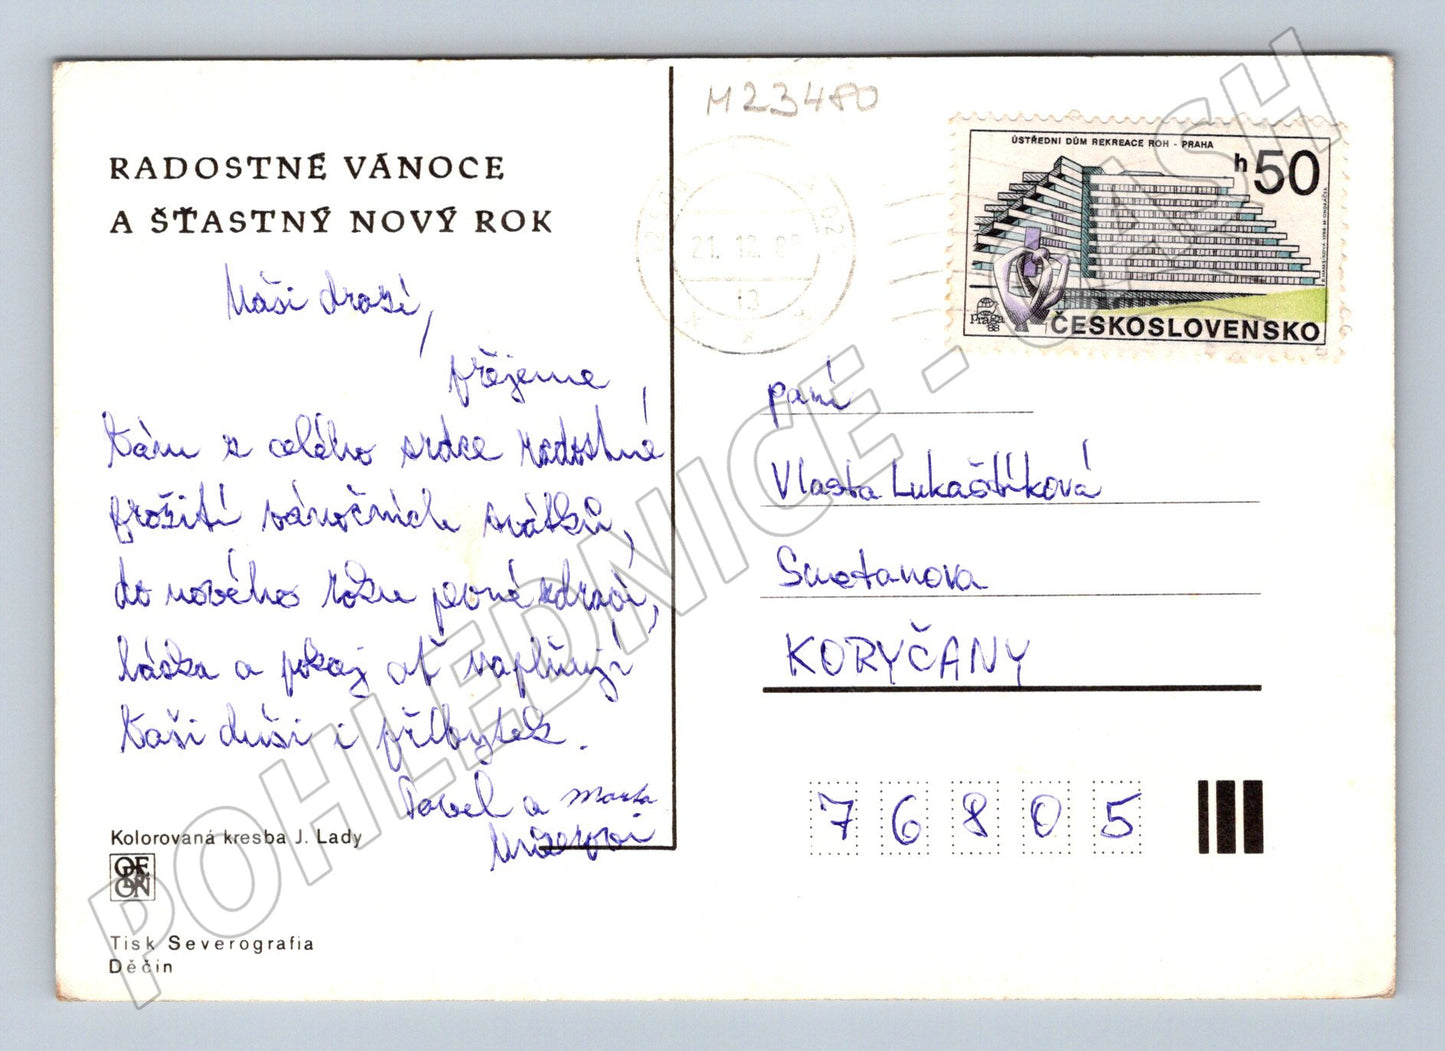 M23480
RADOSTNÉ VÁNOCE
A ŠŤASTNÝ NOVÝ ROK
ÚSTŘEDNÍ DŮM REKREACE ROH - PRAHA
h50
praga
88
ČESKOSLOVENSKO
21.12.88
13
Naši drazí,
přejeme
Vám z celého srdce radostné
prožití vánočních svátků,
do nového roku pevné zdraví,
láska a pokoj ať naplňují
Vaši duši i příbytek.
Pavel a Marta
paní
Vlasta Lukaštíková
Smetanova
KORYČANY
76805
Kolorovaná kresba J. Lady
ORBIS
Tisk Severografia
Děčín
POHLEDNICE - CASH